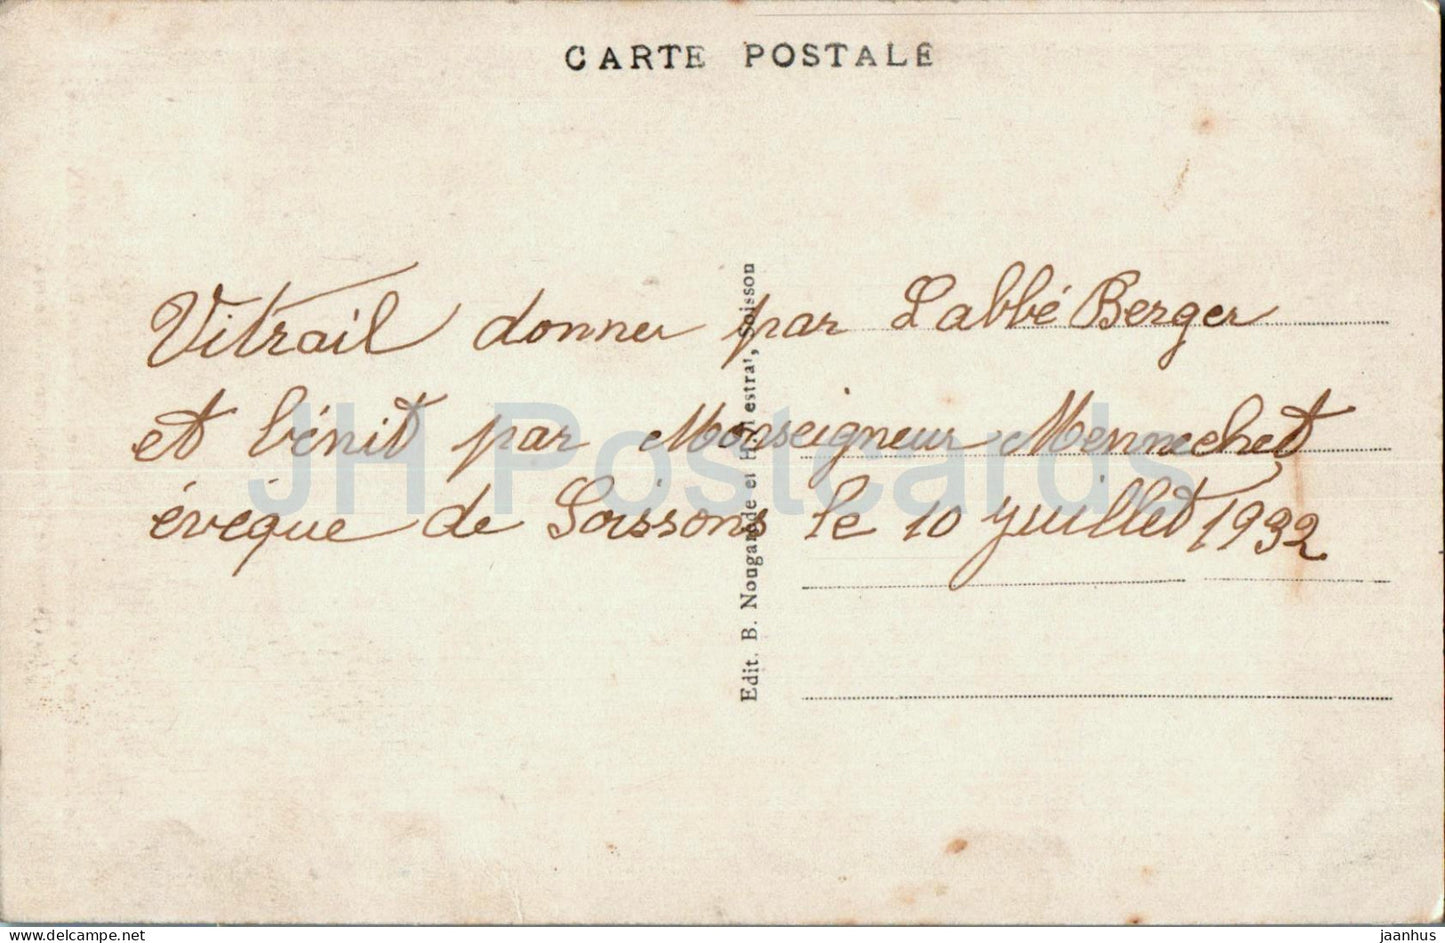 CARTE POSTALE
Vitrail donner par Labbé Berger
et bénit par Monseigneur Mennechet
évéque de Soissons le 10 juillet 1932
Edit. B. Nougarède et H. estra', Soisson
JH Postcards
www.delcampe.net
jaanhus